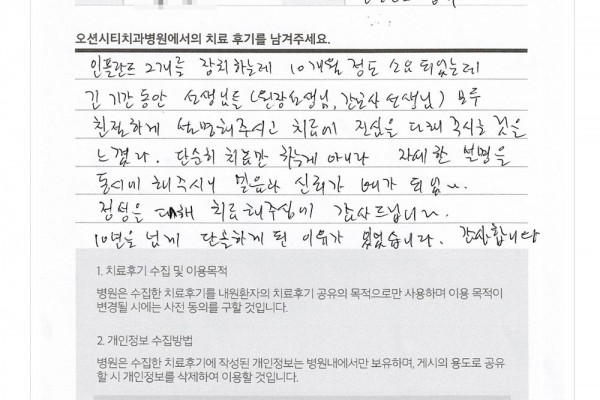 오션시티치과병원에서의 치료 후기를 남겨주세요.
임플란트 2개를 장치하는데 10개월 정도 소요 되었는데
긴 기간 동안 선생님들 (원장선생님, 간호사 선생님) 모두
친절하게 설명해주시고 치료에 진심을 다해 주시는 것을
느꼈다. 단순히 치료만 하는게 아니라 자세한 설명을
동시에 해주시니 믿음과 신뢰가 배가 되었
정성을 다해 치료해주심에 감사드립니다.
10년을 넘게 단골하게 된 이유가 있었습니다. 감사합니다
1. 치료후기 수집 및 이용목적
병원은 수집한 치료후기를 내원환자의 치료후기 공유의 목적으로만 사용하며 이용 목적이
변경될 시에는 사전 동의를 구할 것입니다.
2. 개인정보 수집방법
병원은 수집한 치료후기에 작성된 개인정보는 병원내에서만 보유하며, 게시의 용도로 공유
할 시 개인정보를 삭제하여 이용할 것입니다.